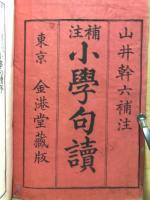 山井幹六補注
補注
小學句讀
東京 金港堂藏版